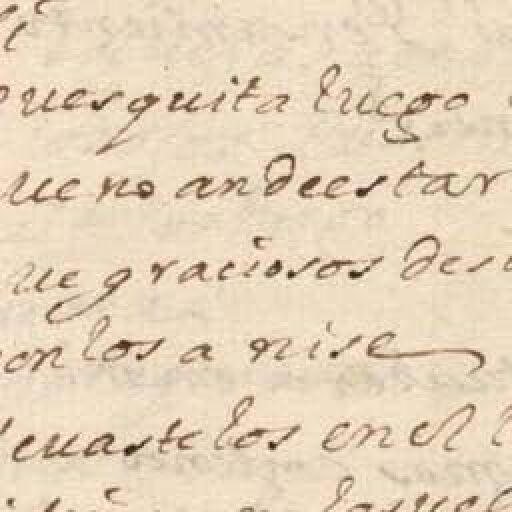 ues quita luego
ue no an de estar
ue graciosos des
onlos a nise
leuastelos en el l